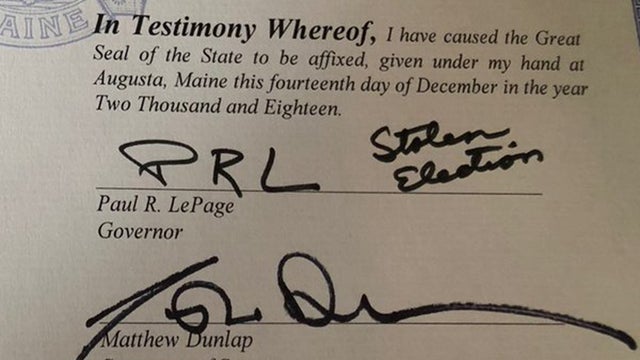 MAINE
In Testimony Whereof, I have caused the Great
Seal of the State to be affixed, given under my hand at
Augusta, Maine this fourteenth day of December in the year
Two Thousand and Eighteen.
PRL Stolen
Election
Paul R. LePage
Governor
Matthew Dunlap